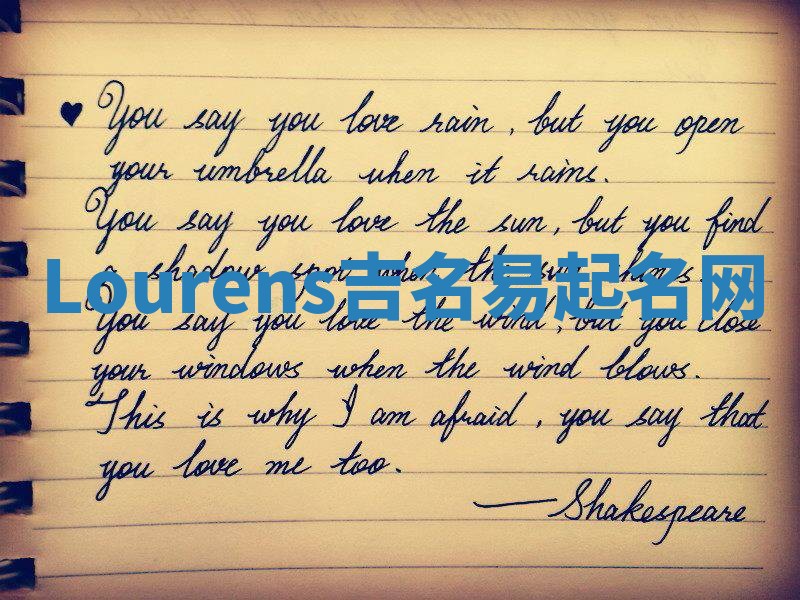 ♥ You say you love rain, but you open
your umbrella when it rains.
You say you love the sun, but you find
a shadow spot when the sun shines.
Lourens吉名易起名网
You say you love the wind, but you close
your windows when the wind blows.
This is why I am afraid, you say that
you love me too.
—Shakespeare